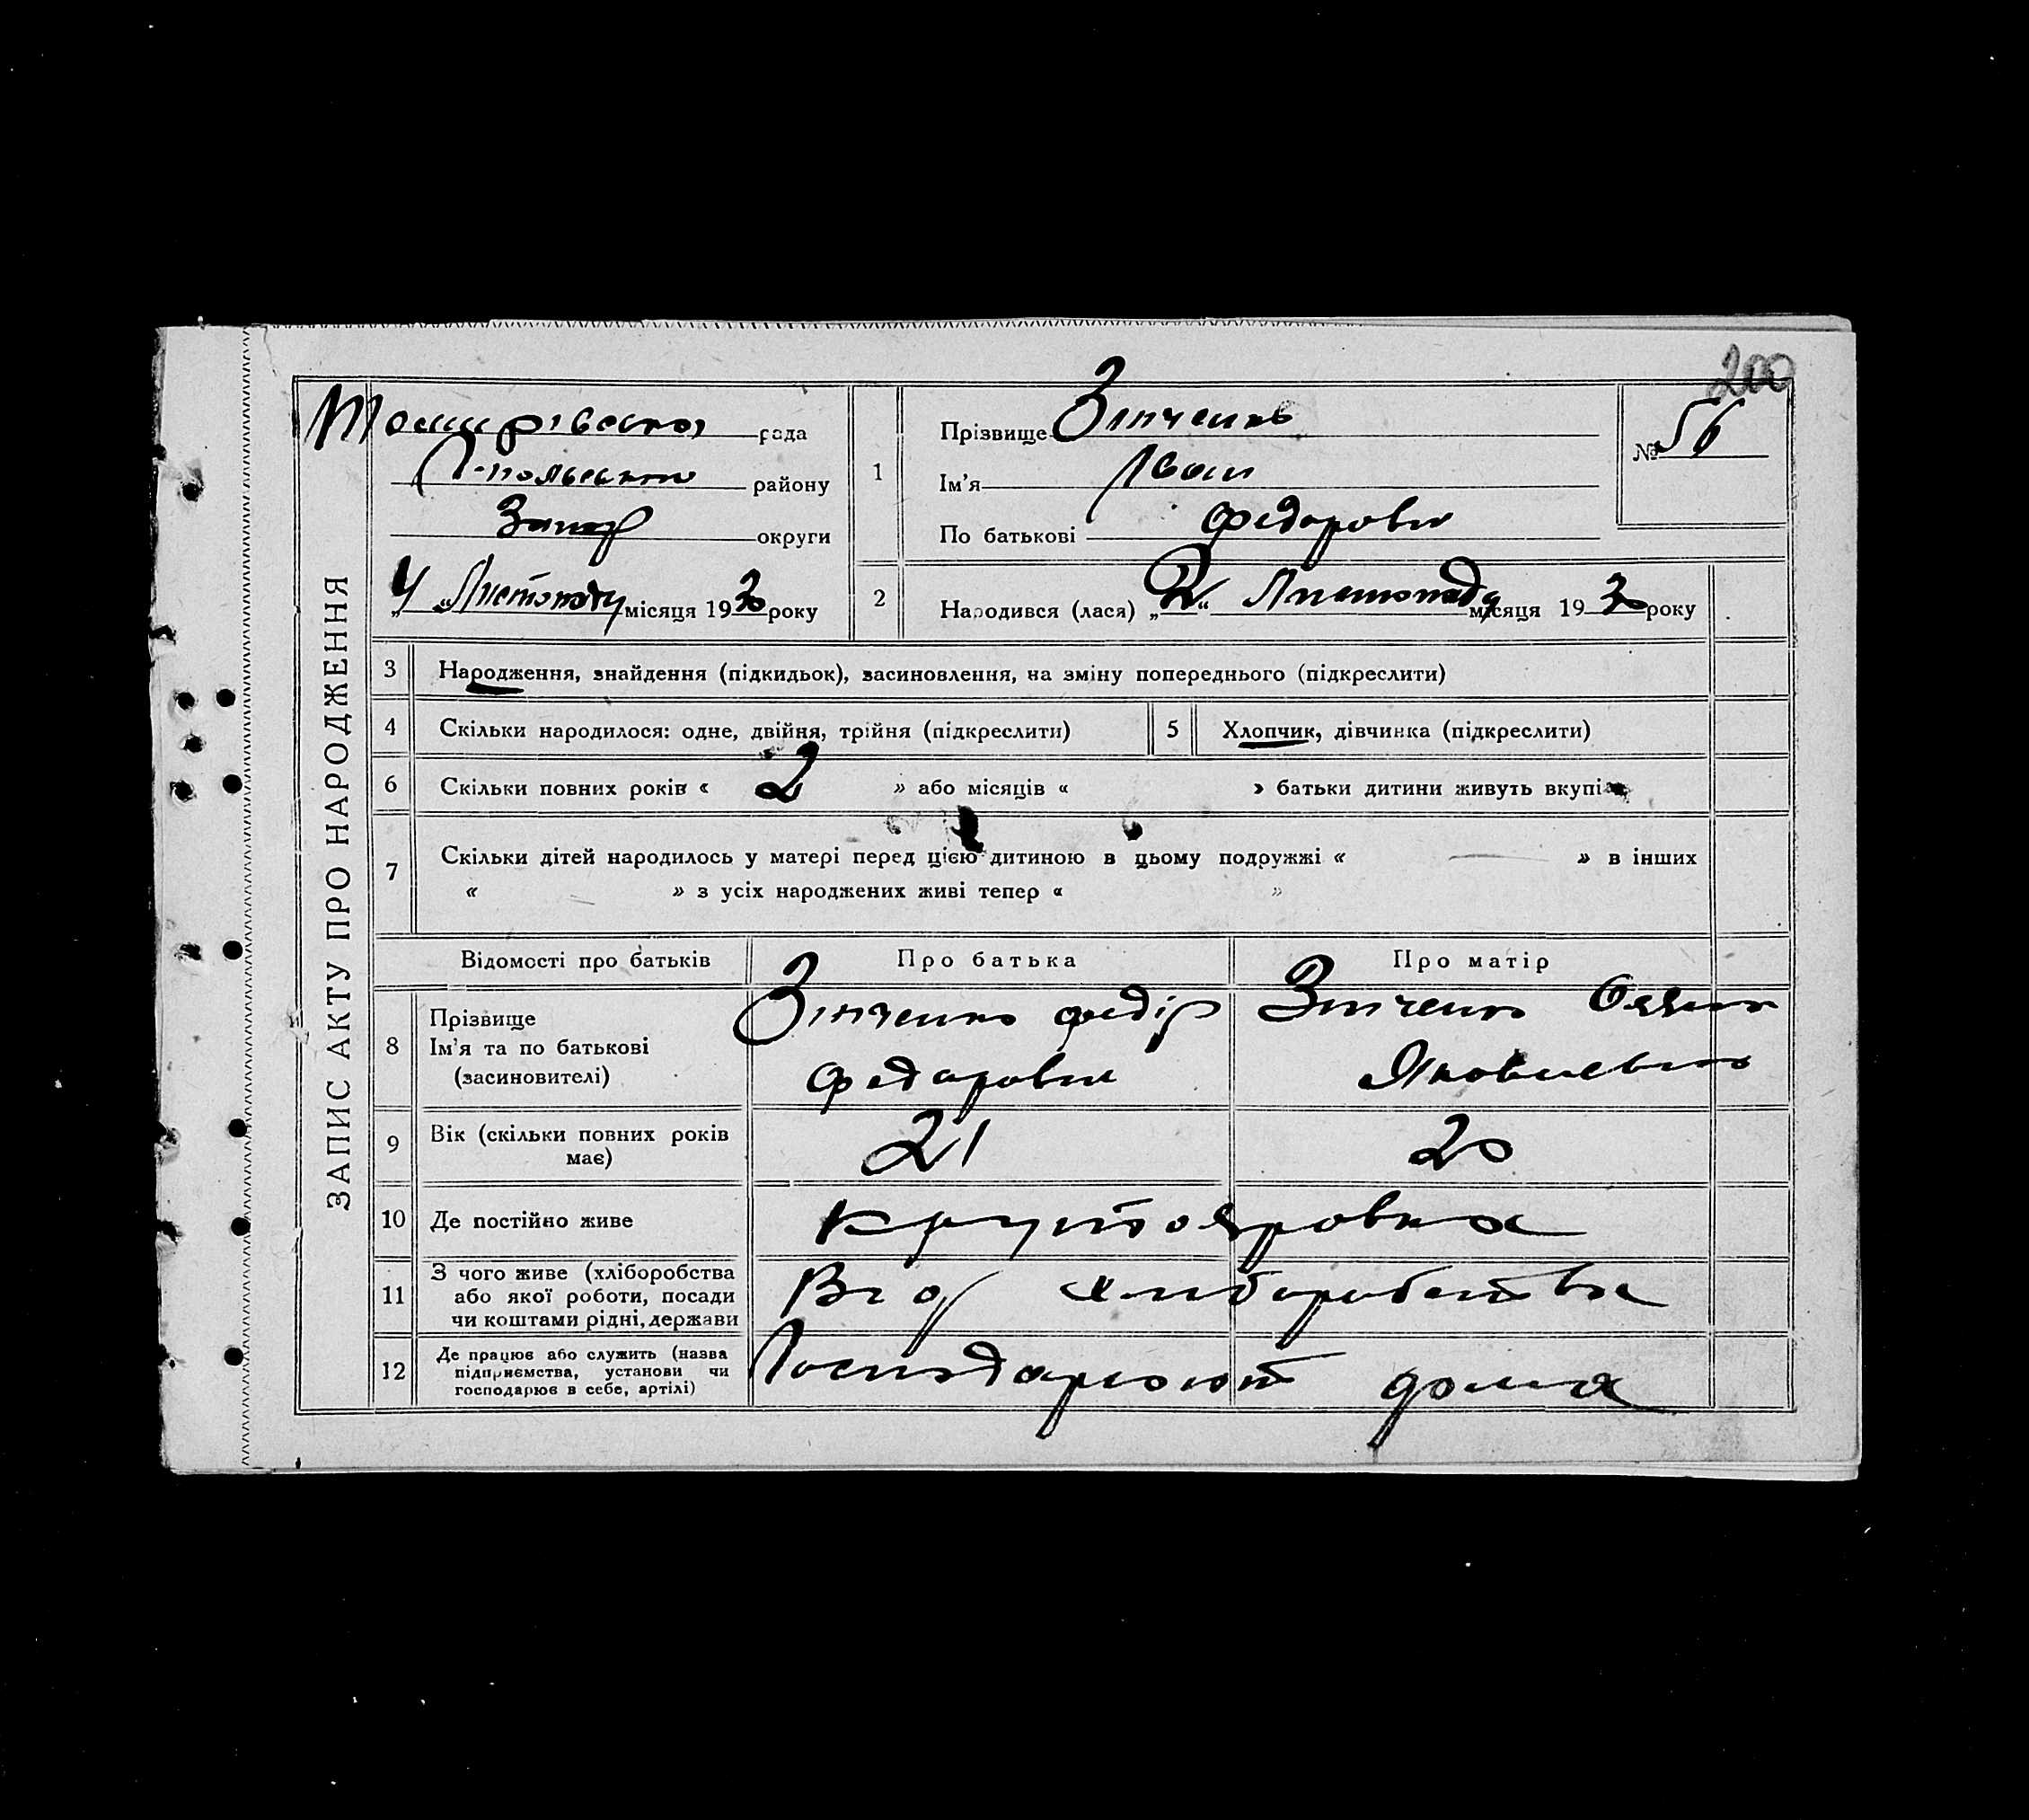 200
ЗАПИС АКТУ ПРО НАРОДЖЕННЯ
рада
району
Запор округи
„4“ Листопаду місяця 1930 року
1 Прізвище Зінченко
Ім'я Іван
По батькові Федорович
№ 56
2 Народився (лася) „2“ Листопада місяця 1930 року
3 Народження, знайдення (підкидьок), засиновлення, на зміну попереднього (підкреслити)
4 Скільки народилося: одне, двійня, трійня (підкреслити)
5 Хлопчик, дівчинка (підкреслити)
6 Скільки повних років « 2 » або місяців « » батьки дитини живуть вкупі
7 Скільки дітей народилось у матері перед цією дитиною в цьому подружжі « — » в інших
« » з усіх народжених живі тепер « »
Відомості про батьків Про батька Про матір
8 Прізвище
Ім'я та по батькові
(засиновителі)
Зінченко Федір
Федорович
Зінченко
Яковлевна
9 Вік (скільки повних років
має)
21 20
10 Де постійно живе Крутояровка
11 З чого живе (хліборобства
або якої роботи, посади
чи коштами рідні, держави
Від хлиборобства
12 Де працює або служить (назва
підприємства, установи чи
господарює в себе, артілі)
Господарюют дома